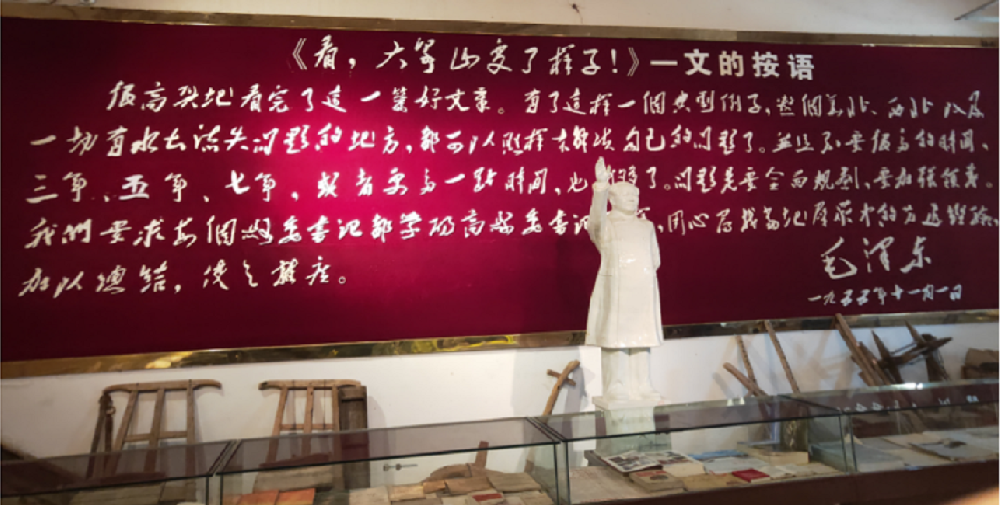 《看，大泉山变了样子！》一文的按语
很高兴地看完了这一篇好文章。有了这样一個典型例子，整個华北、西北以及
一切有水土流失问题的地方，都可以照样去解决自己的问题了。並且不要很多的时间，
三年、五年、七年，或者更多一點时间，也够了。问题是要全面规划，要加强领导。
我們要求每個县委书记都学阳高县委书记，用心寻找当地群众中的先进经验，
加以總结，使之推广。
毛泽东
一九五五年十一月一日